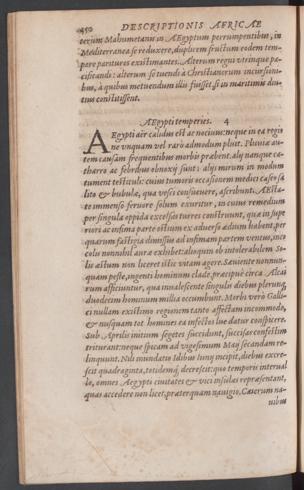 450 DESCRIPTIONIS AFRICAE
terum Mahumetanis in AEgyptum perrumpentibus, in
Mediterranea se reduxere, duplicem fructum eodem tem-
pore parituros existimantes. Alterum regni vtrinque pa-
cificandi: alterum se tuendi à Christianorum incursioni-
bus, à quibus metuendum illis fuisset, si in maritimis diu-
tius constitissent.
AEgypti temperies. 4
AEgypti aër calidus est ac nociuus: neque in ea regio
ne vnquam vel rarò admodum pluit. Pluuiæ au-
tem causam frequentibus morbis præbent. alij nanque ca-
tharro ac febribus obnoxij sunt: alijs mirum in modum
tument testiculi: cuius tumoris occasionem medici caseo sa
lito & bubulæ, qua vesci consueuere, ascribunt. AEsta-
te immenso feruore solum exuritur, in cuius remedium
per singula oppida excelsas turres construunt, quæ in supe
riori ac infima parte ostium ex aduerso ædium habent, per
quarum fastigia dimissus ad infimam partem ventus, inco
lis nonnihil auræ exhibet: alioquin ob intolerabilem So-
lis æstum non liceret istic vitam agere. Sæuiente nonnun-
quam peste, ingenti hominum clade, præcipuè circa Alcai
rum afficiuntur, qua inualescente singulis diebus plerunq́;
duodecim hominum millia occumbunt. Morbi verò Galli-
ci nullam existimo regionem tanto affectam incommodo,
& nusquam tot homines ea infectos lue datur conspicere.
Sub Aprilis initium segetes succidunt, succisas confestim
triturant: neque spicam ad vigesimum Maij secandam re-
linquunt. Nili inundatio Idibus Iunij incipit, diebus excre-
scit quadraginta, totidemq́; decrescit: quo temporis interual
lo, omnes AEgypti ciuitates & vici insulas repræsentant,
quas accedere non licet, præterquam nauigio. Cæterum na-
uibus